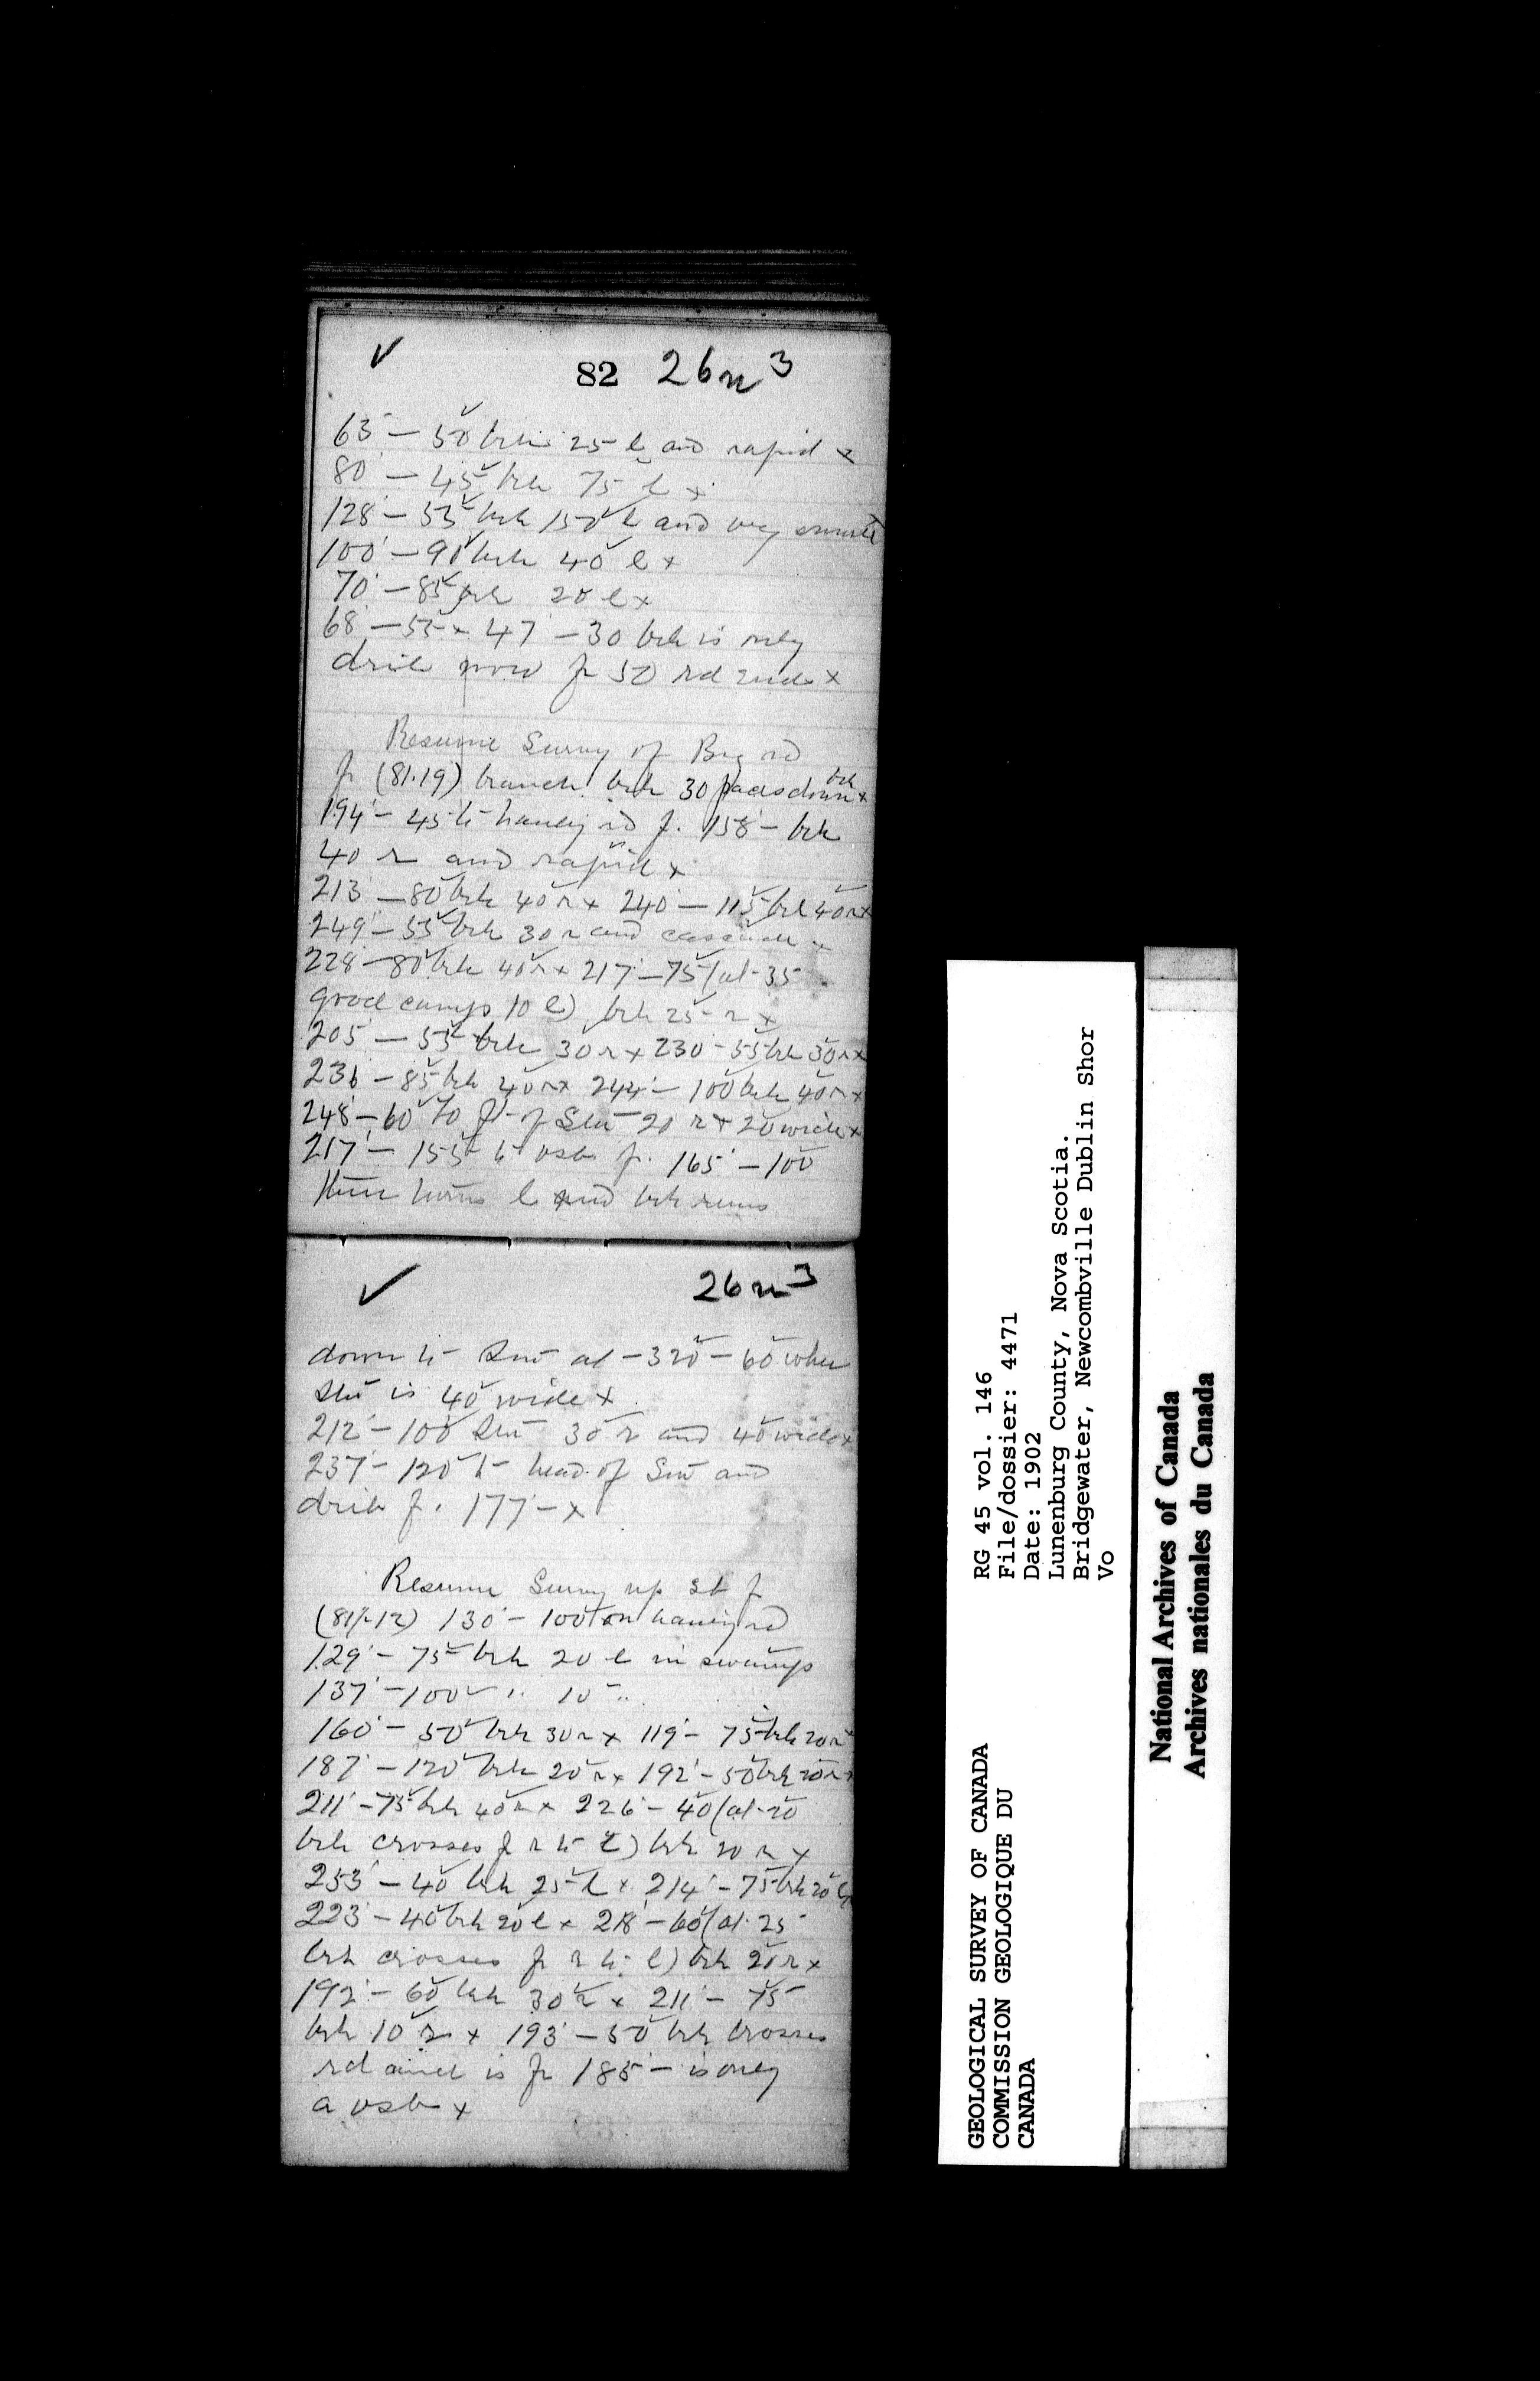 82 26n3
63 — 50 brk 25 l and rapid x
80 — 45 brk 75 l x
128 — 55 brk 150 l and very small
100 — 90 brk 40 l x
70 — 85 brk 20 l x
68 — 55 x 47 — 30 brk is only
drib now fr 50 rd ends x
Resume Survey of Big rd
fr (81.19) branch brk 30 paces down brk x
194 — 45 to haulg rd fr. 158 — brk
40 r and rapid x
213 — 80 brk 40 r x 240 — 115 brk 40 r x
249 — 55 brk 30 r and cascade x
228 — 80 brk 40 r x 217 — 75 (at 35
good camps 10 l) brk 25 r x
205 — 55 brk 30 r x 230 — 55 brk 30 r x
236 — 85 brk 40 r x 244 — 100 brk 40 r x
248 — 60 to ft of Stw 20 r + 20 wide x
217 — 155 to vsb fr. 165 — 100
then turns l and brk runs
26n3
down to Stw at — 320 — 60 when
Stw is 40 wide x
212 — 100 Stw 30 r and 40 wide x
237 — 120 to head of Stw and
drib fr. 177 — x
Resume Survey up st fr
(81.12) 130 — 100 on haulg rd
129 — 75 brk 20 l in swamps
137 — 100 " 10 "
160 — 50 brk 30 r x 119 — 75 brk 20 r x
187 — 120 brk 20 r x 192 — 50 brk 20 r x
211 — 75 brk 40 r x 226 — 40 (at 20
brk crosses fr r to l) brk 20 r x
253 — 40 brk 25 l x 214 — 75 brk 20 l x
223 — 40 brk 20 l x 218 — 60 (at 25
brk crosses fr r to l) brk 20 r x
192 — 60 brk 30 r x 211 — 75
brk 10 r x 193 — 50 brk crosses
rd and is fr 185 — is only
a vsb x
RG 45 vol. 146
File/dossier: 4471
Date: 1902
Lunenburg County, Nova Scotia.
Bridgewater, Newcombville Dublin Shor
Vo
GEOLOGICAL SURVEY OF CANADA
COMMISSION GEOLOGIQUE DU
CANADA
National Archives of Canada
Archives nationales du Canada